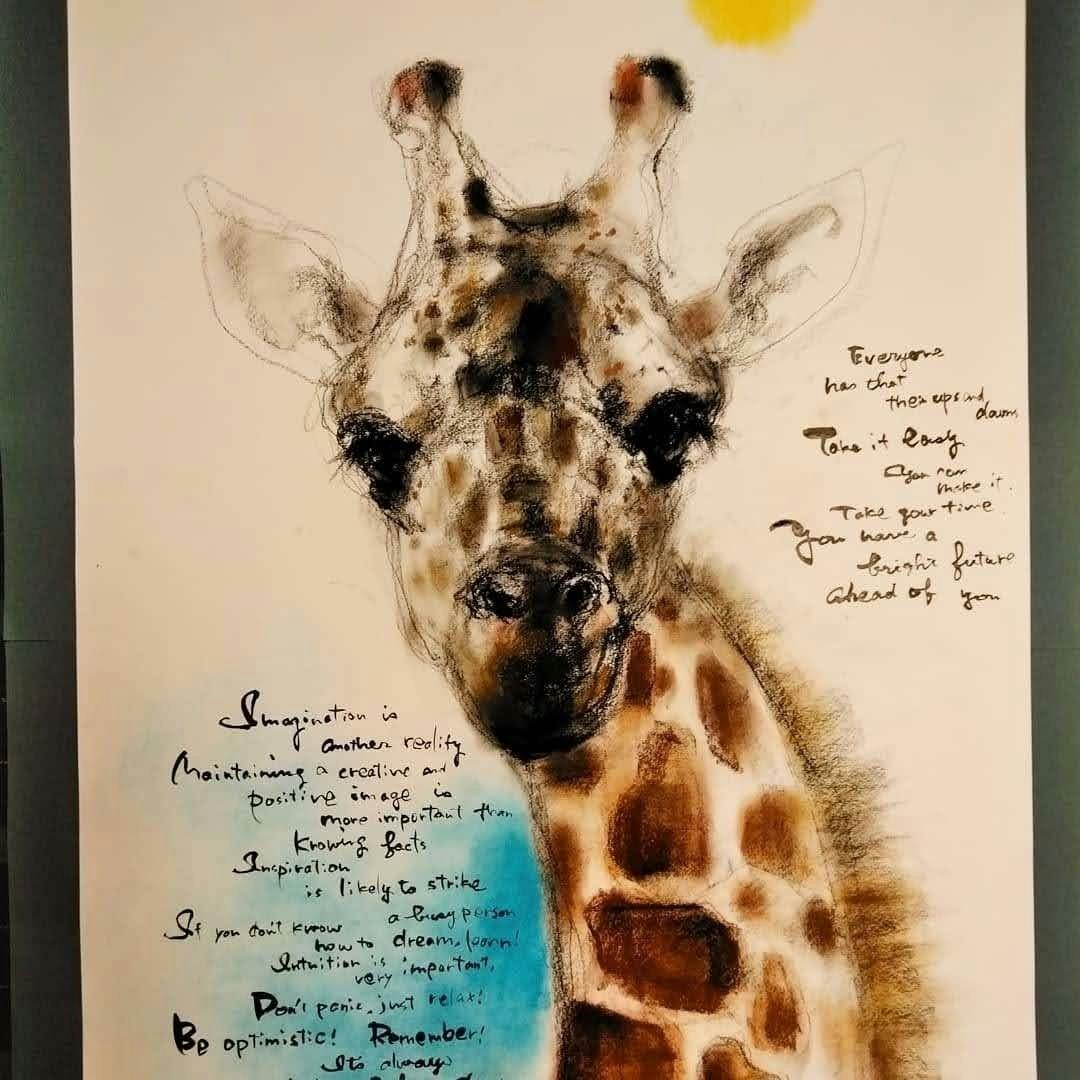 Everyone
has that
their ups and
downs
Take it easy
You can
make it.
Take your time.
You have a
bright future
ahead of you
Imagination is
another reality
Maintaining a creative and
positive image is
more important than
knowing facts
Inspiration
is likely to strike
a busy person
If you don't know
how to dream, learn!
Intuition is
very important.
Don't panic, just relax!
Be optimistic! Remember!
Its always